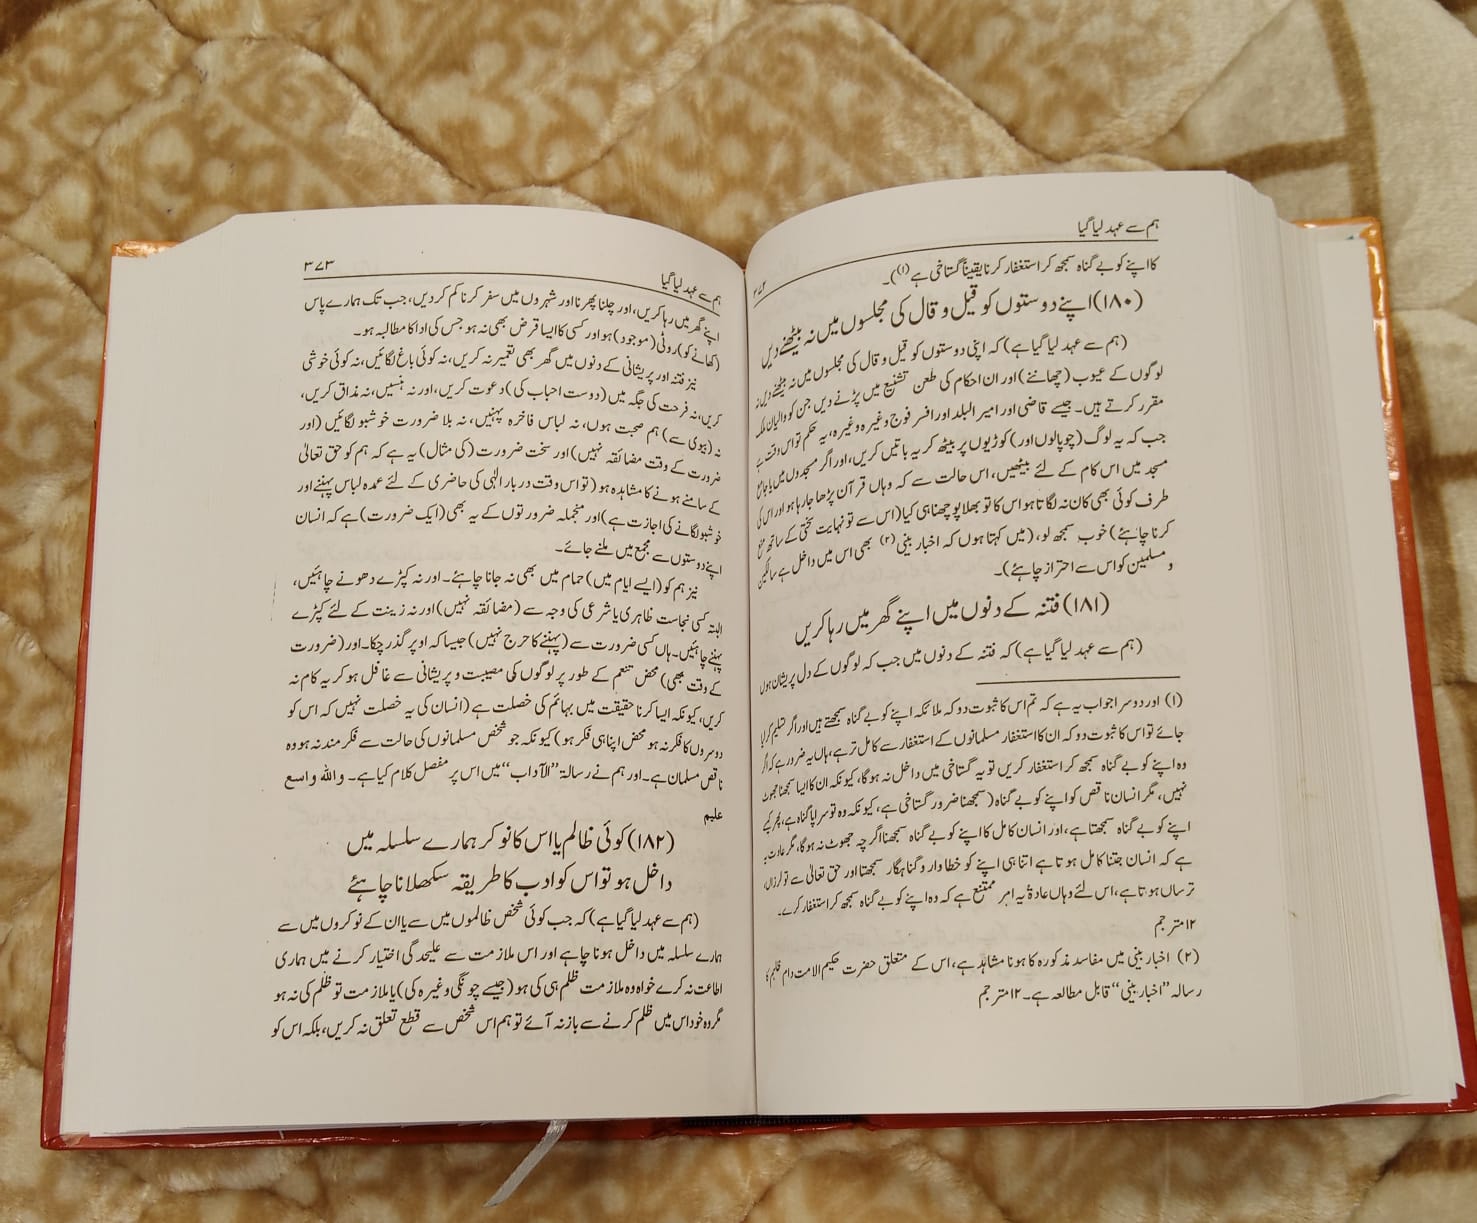 ہم سے عہد لیا گیا
۳۷۲
کا اپنے کو بے گناہ سمجھ کر استغفار کرنا یقیناً گستاخی ہے (۱)۔
(۱۸۰) اپنے دوستوں کو قیل و قال کی مجلسوں میں نہ بیٹھنے دیں
(ہم سے عہد لیا گیا ہے) کہ اپنی دوستوں کو قیل و قال کی مجلسوں میں نہ بیٹھنے دیں نہ
لوگوں کے عیوب (چھاننے) اور ان احکام کی طعن تشنیع میں پڑنے دیں جن کو والیان ملک
مقرر کرتے ہیں۔ جیسے قاضی اور امیر البلد اور افسر فوج وغیرہ وغیرہ، یہ حکم تو اس وقت ہے
جب کہ یہ لوگ (چوپالوں اور) کوڑیوں پر بیٹھ کر یہ باتیں کریں، اور اگر مسجدوں میں یا جامع
مسجد میں اس کام کے لئے بیٹھیں، اس حالت سے کہ وہاں قرآن پڑھا جا رہا ہو اور اس کی
طرف کوئی بھی کان نہ لگاتا ہو اس کا تو بھلا پوچھنا ہی کیا (اس سے تو نہایت سختی کے ساتھ منع
کرنا چاہئے) خوب سمجھ لو، (میں کہتا ہوں کہ اخبار بینی (۲) بھی اس میں داخل ہے سالکین
و مسلمین کو اس سے احتراز چاہئے)۔
(۱۸۱) فتنہ کے دنوں میں اپنے گھر میں رہا کریں
(ہم سے عہد لیا گیا ہے) کہ فتنہ کے دنوں میں جب کہ لوگوں کے دل پریشان ہوں
(۱) اور دوسرا جواب یہ ہے کہ تم اس کا ثبوت دو کہ ملائکہ اپنے کو بے گناہ سمجھتے ہیں اور اگر تسلیم کر لیا
جائے تو اس کا ثبوت دو کہ ان کا استغفار مسلمانوں کے استغفار سے کامل تر ہے، ہاں یہ ضرور ہے کہ اگر
وہ اپنے کو بے گناہ سمجھ کر استغفار کریں تو یہ گستاخی میں داخل نہ ہوگا، کیونکہ ان کا ایسا سمجھنا جھوٹ
نہیں، مگر انسان ناقص کو اپنے کو بے گناہ (سمجھنا ضرور گستاخی ہے، کیونکہ وہ تو سراپا گناہ ہے، پھر کیسے
اپنے کو بے گناہ سمجھتا ہے، اور انسان کامل کا اپنے کو بے گناہ سمجھنا اگر چہ جھوٹ نہ ہوگا، مگر عادت یہ
ہے کہ انسان جتنا کامل ہوتا ہے اتنا ہی اپنے کو خطاوار و گناہگار سمجھتا اور حق تعالیٰ سے تو لرزاں
ترساں ہوتا ہے، اس لئے وہاں عادۃً یہ امر ممتنع ہے کہ وہ اپنے کو بے گناہ سمجھ کر استغفار کرے۔
۱۲ مترجم
(۲) اخبار بینی میں مفاسد مذکورہ کا ہونا مشاہَد ہے، اس کے متعلق حضرت حکیم الامت دام ظلہم کا
رسالہ "اخبار بینی" قابل مطالعہ ہے۔ ۱۲ مترجم
ہم سے عہد لیا گیا
۳۷۳
اپنے گھر میں رہا کریں، اور چلنا پھرنا اور شہروں میں سفر کرنا کم کر دیں، جب تک ہمارے پاس
(کھانے کو) روٹی (موجود) ہو اور کسی کا ایسا قرض بھی نہ ہو جس کی ادا کا مطالبہ ہو۔
نیز فتنہ اور پریشانی کے دنوں میں گھر بھی تعمیر نہ کریں، نہ کوئی باغ لگائیں، نہ کوئی خوشی
کریں، نہ فرحت کی جگہ میں (دوست احباب کی) دعوت کریں، اور نہ ہنسیں، نہ مذاق کریں،
نہ (بیوی سے) ہم صحبت ہوں، نہ لباس فاخرہ پہنیں، نہ بلا ضرورت خوشبو لگائیں (اور
ضرورت کے وقت مضائقہ نہیں) اور سخت ضرورت (کی مثال) یہ ہے کہ ہم کو حق تعالیٰ
کے سامنے ہونے کا مشاہدہ ہو (تو اس وقت دربار الٰہی کی حاضری کے لئے عمدہ لباس پہننے اور
خوشبو لگانے کی اجازت ہے) اور منجملہ ضرورتوں کے یہ بھی (ایک ضرورت) ہے کہ انسان
اپنے دوستوں سے مجمع میں ملنے جائے۔
نیز ہم کو (ایسے ایام میں) حمام میں بھی نہ جانا چاہئے۔ اور نہ کپڑے دھونے چاہئیں،
البتہ کسی نجاست ظاہری یا شرعی کی وجہ سے (مضائقہ نہیں) اور نہ زینت کے لئے کپڑے
پہننے چاہئیں۔ ہاں کسی ضرورت سے (پہننے کا حرج نہیں) جیسا کہ اوپر گذر چکا۔ اور (ضرورت
کے وقت بھی) محض تنعم کے طور پر لوگوں کی مصیبت و پریشانی سے غافل ہو کر یہ کام نہ
کریں، کیونکہ ایسا کرنا حقیقت میں بہائم کی خصلت ہے (انسان کی یہ خصلت نہیں کہ اس کو
دوسروں کا فکر نہ ہو محض اپنا ہی فکر ہو) کیونکہ جو شخص مسلمانوں کی حالت سے فکر مند نہ ہو وہ
ناقص مسلمان ہے۔ اور ہم نے رسالۃ "الآداب" میں اس پر مفصل کلام کیا ہے۔ واللہ واسع
علیم
(۱۸۲) کوئی ظالم یا اس کا نوکر ہمارے سلسلہ میں
داخل ہو تو اس کو ادب کا طریقہ سکھلانا چاہئے
(ہم سے عہد لیا گیا ہے) کہ جب کوئی شخص ظالموں میں سے یا ان کے نوکروں میں سے
ہمارے سلسلہ میں داخل ہونا چاہے اور اس ملازمت سے علیحدگی اختیار کرنے میں ہماری
اطاعت نہ کرے خواہ وہ ملازمت ظلم ہی کی ہو (جیسے چونگی وغیرہ کی) یا ملازمت تو ظلم کی نہ ہو
مگر وہ خود اس میں ظلم کرنے سے باز نہ آئے تو ہم اس شخص سے قطع تعلق نہ کریں، بلکہ اس کو